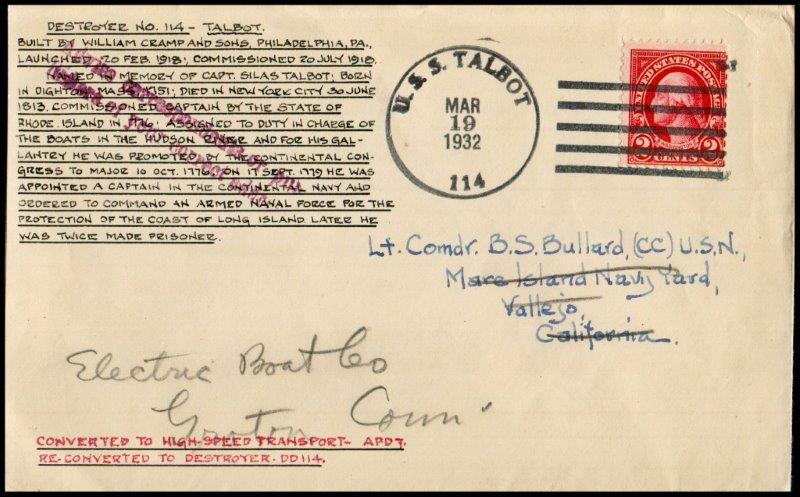 DESTROYER NO. 114 - TALBOT.
BUILT BY WILLIAM CRAMP AND SONS, PHILADELPHIA, PA.,
LAUNCHED 20 FEB. 1918; COMMISSIONED 20 JULY 1918.
NAMED IN MEMORY OF CAPT. SILAS TALBOT; BORN
IN DIGHTON, MASS. 1751; DIED IN NEW YORK CITY 30 JUNE
1813. COMMISSIONED CAPTAIN BY THE STATE OF
RHODE ISLAND IN 1776; ASSIGNED TO DUTY IN CHARGE OF
THE BOATS IN THE HUDSON RIVER AND FOR HIS GAL-
LANTRY HE WAS PROMOTED BY THE CONTINENTAL CON-
GRESS TO MAJOR 10 OCT. 1776. ON 17 SEPT. 1779 HE WAS
APPOINTED A CAPTAIN IN THE CONTINENTAL NAVY AND
ORDERED TO COMMAND AN ARMED NAVAL FORCE FOR THE
PROTECTION OF THE COAST OF LONG ISLAND. LATER HE
WAS TWICE MADE PRISONER.
U.S.S. TALBOT
MAR
19
1932
114
UNITED STATES POSTAGE
2 CENTS 2
Lt. Comdr. B.S. Bullard, (CC) U.S.N.,
Mare Island Navy Yard,
Vallejo,
California.
Electric Boat Co
Groton Conn.
CONVERTED TO HIGH-SPEED TRANSPORT- APD7.
RE-CONVERTED TO DESTROYER-DD114.